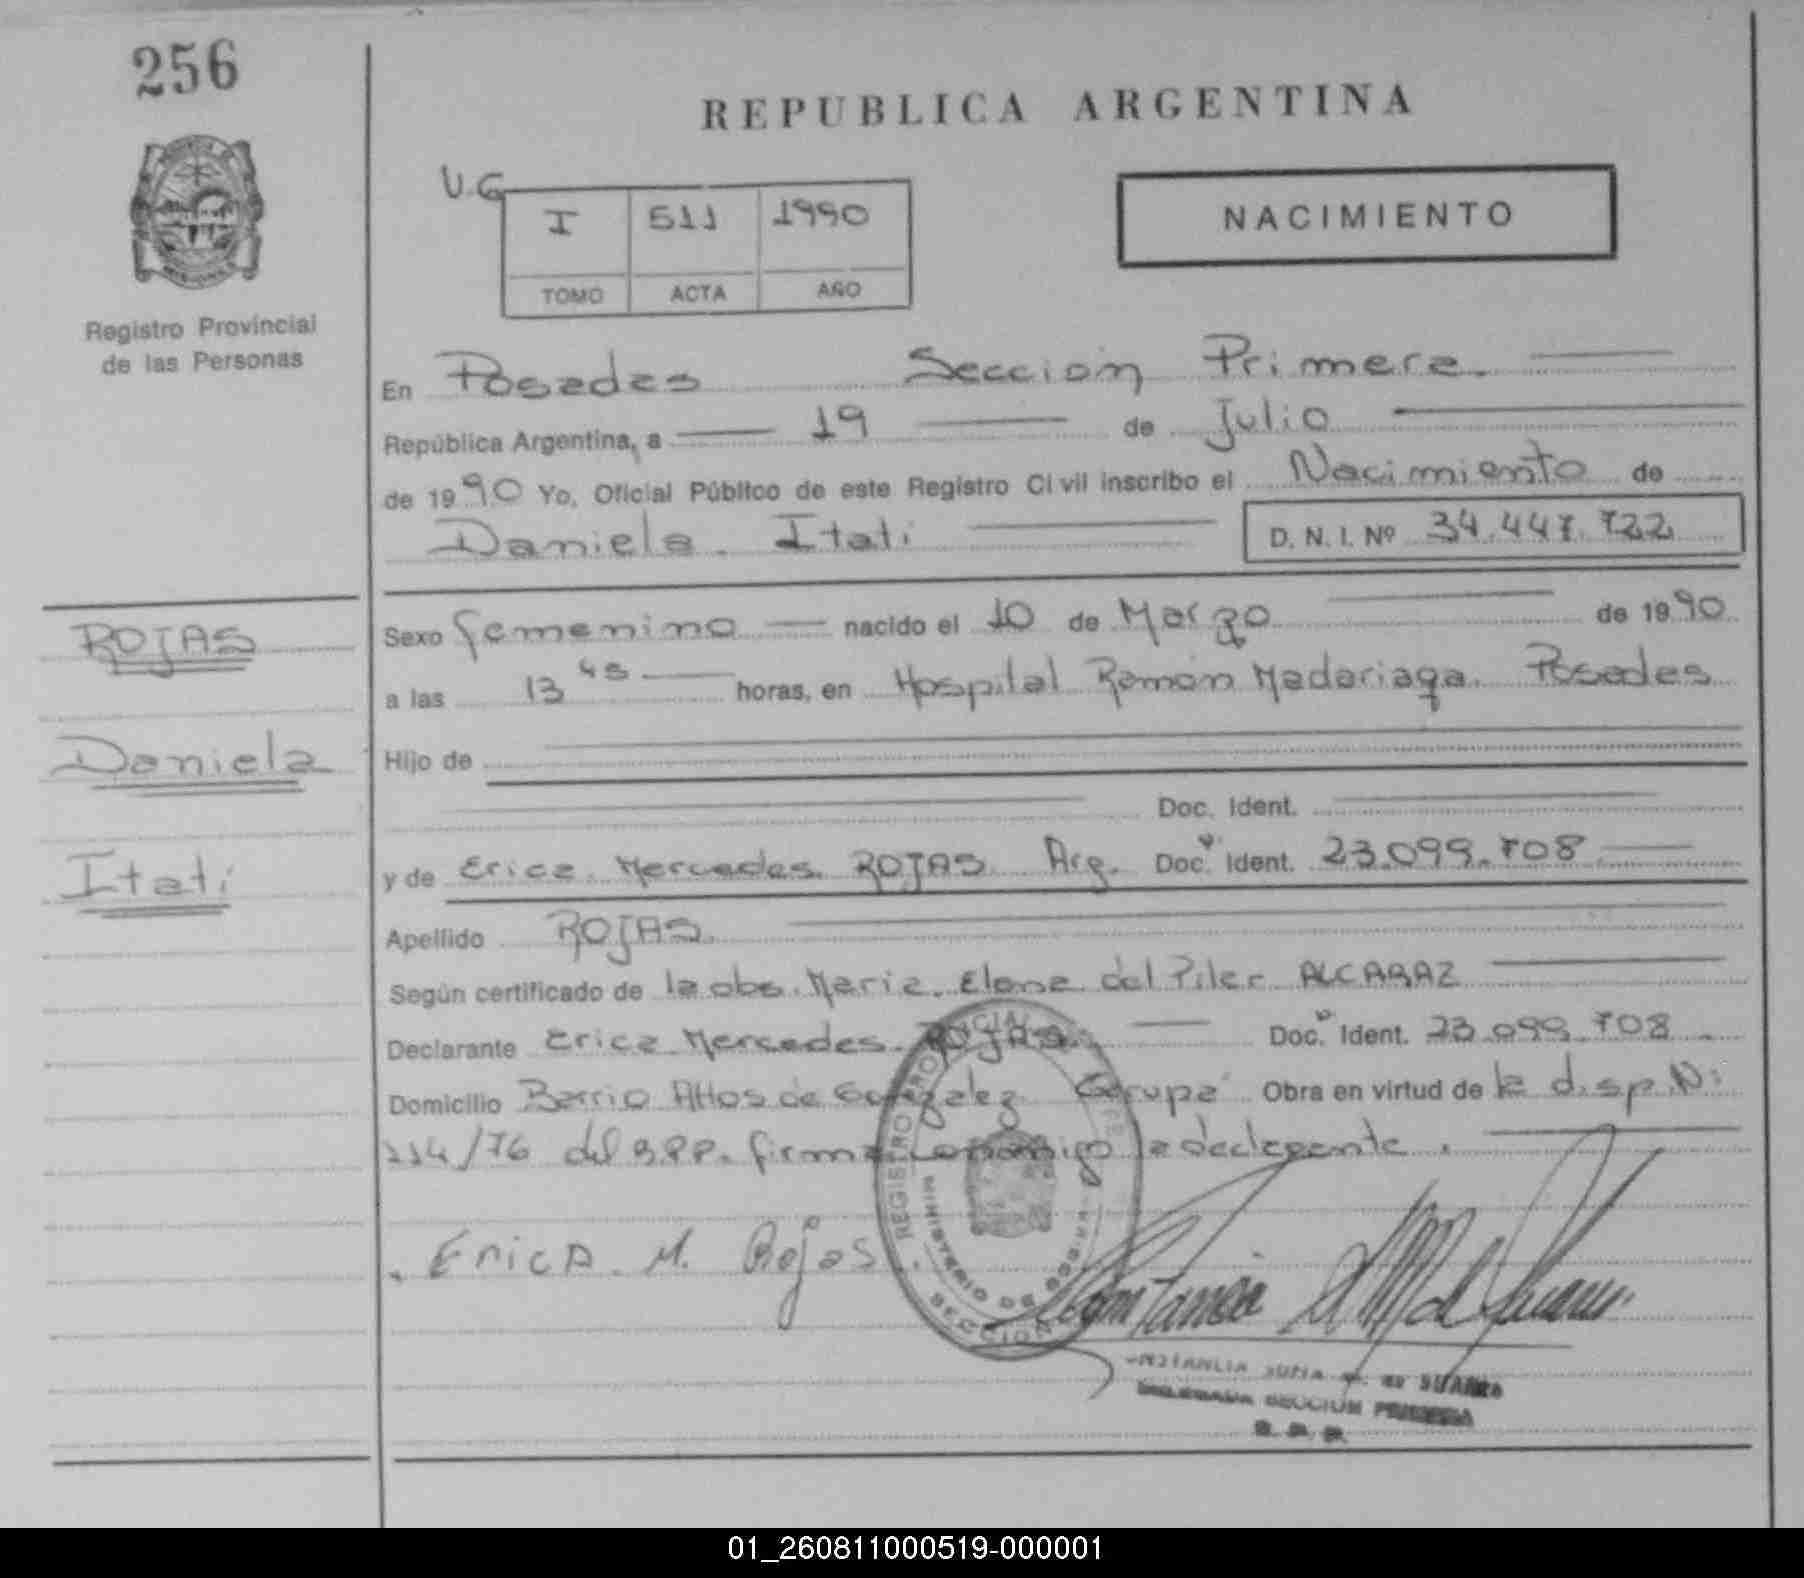 256
REPUBLICA ARGENTINA
U.G
I 511 1990
TOMO ACTA AÑO
NACIMIENTO
Registro Provincial
de las Personas
En Posadas Sección Primera.
República Argentina, a 19 de Julio
de 1990 Yo, Oficial Público de este Registro Civil inscribo el Nacimiento de
Daniela Itati D. N. I. Nº 34.447.722
ROJAS
Daniela
Itati
Sexo femenino nacido el 10 de Marzo de 1990
a las 13 45 horas, en Hospital Ramón Madariaga. Posadas
Hijo de
Doc. Ident.
y de Erica Mercedes ROJAS Arg. Doc. Ident. 23.099.708
Apellido ROJAS.
Según certificado de la obs. Maria Elena del Pilar ALCARAZ
Declarante Erica Mercedes ROJAS Doc. Ident. 23.099.708
Domicilio Barrio Altos de Gonzalez Garupa Obra en virtud de la disp. N:
214/76 del R.P.P. firma conmigo la declarante.
Erica M. Rojas
REGISTRO PROVINCIAL
MINISTERIO DE GOBIERNO
SECCION
DE SUAREZ
SECCION PRIMERA
R. P. P.
01_260811000519-000001